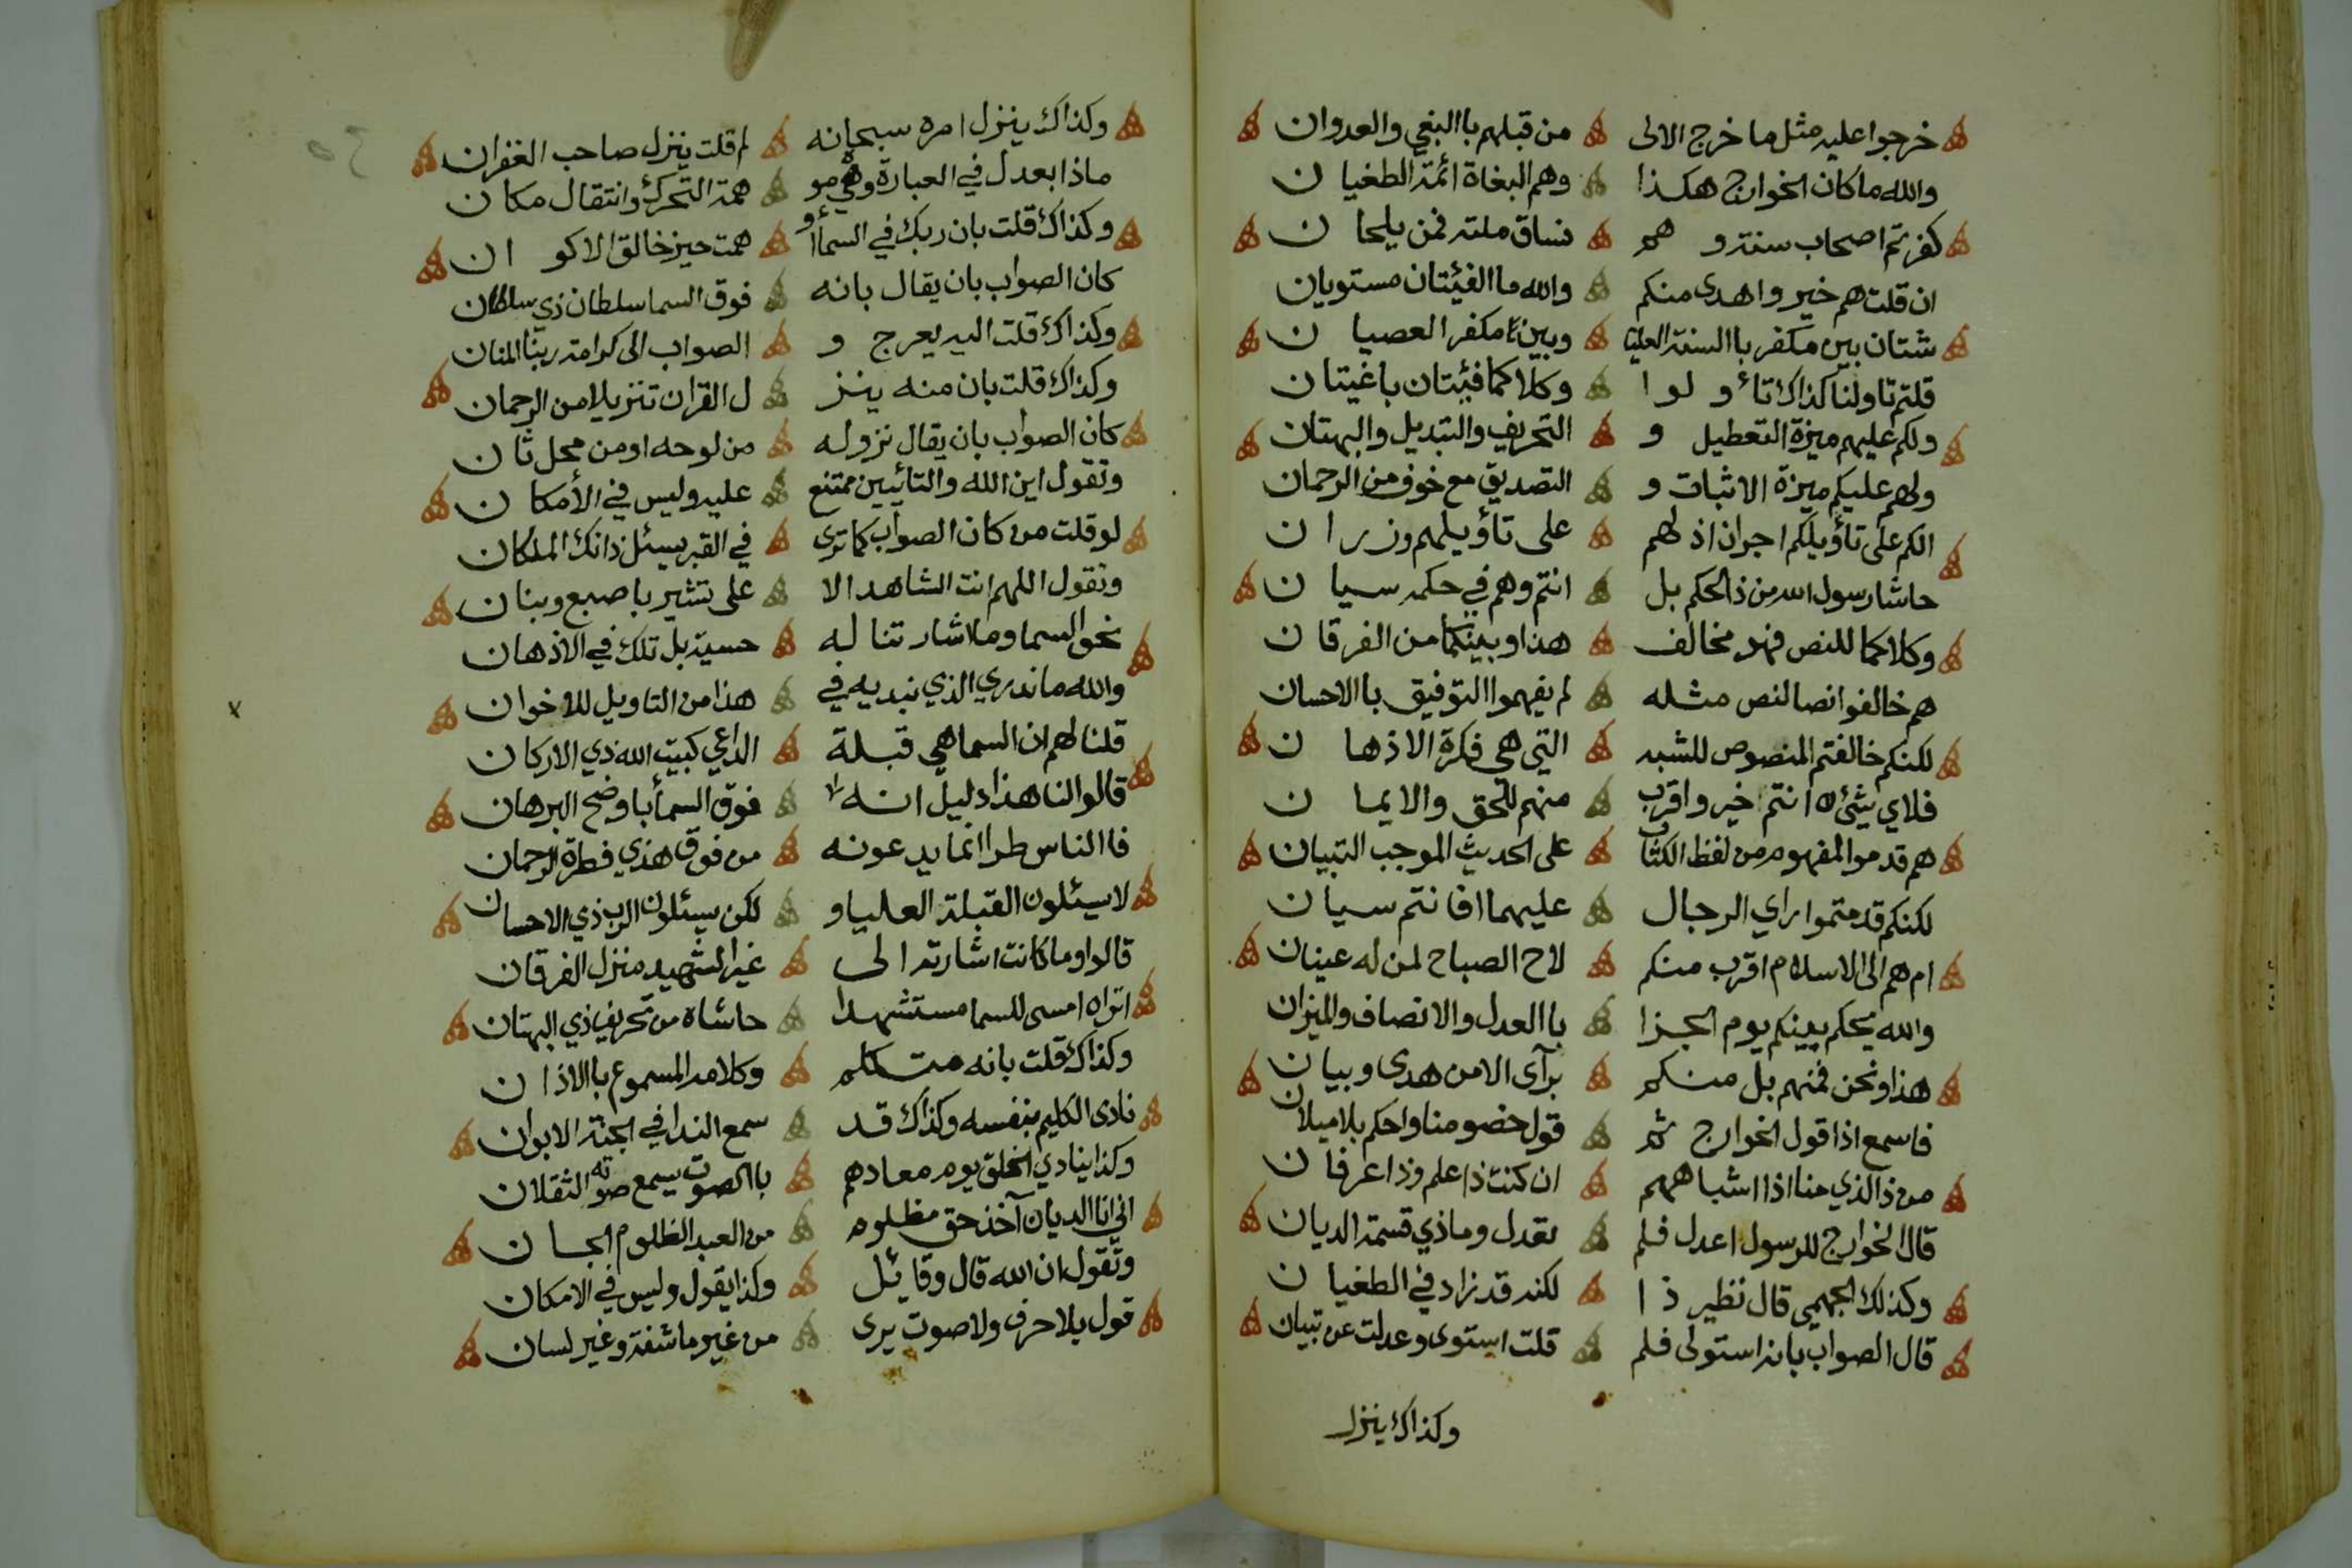 خرجوا عليه مثل ما خرج الالى من قبلهم باالبغي والعدوان
والله ما كان الخوارج هكذا وهم البغاة ائمة الطغيان
كفرتم اصحاب سنته و هم فساق ملته فمن يلحان
ان قلت هم خير واهدى منكم والله ما الفئتان مستويان
شتان بين مكفر باالسنة العليا وبين مكفر العصيان
قلتم تاولنا كذاك تأولوا وكلاكما فئيتان باغيتان
ولكم عليهم ميزة التعطيل و التحريف والتبديل والبهتان
ولهم عليكم ميزة الاثبات و التصديق مع خوف من الرحمان
الكم على تأويلكم اجران اذ لهم على تأويلهم وزران
حاشا رسول الله من ذا الحكم بل انتم وهم في حكمه سيان
وكلاكما للنص فهو مخالف هذا وبينكما من الفرقان
هم خالفوا نصا لنص مثله لم يفهموا التوفيق باالاحسان
لكنكم خالفتم المنصوص للشبه التي هي فكرة الاذهان
فلاي شيئ انتم خير واقرب منهم للحق والايمان
هم قدموا المفهوم من لفظ الكتاب على الحديث الموجب التبيان
لكنكم قدمتموا راي الرجال عليهما افانتم سيان
ام هم الى الاسلام اقرب منكم لاح الصباح لمن له عينان
والله يحكم بينكم يوم الجزا باالعدل والانصاف والميزان
هذا ونحن فمنهم بل منكم برآى الا من هدى وبيان
فاسمع اذا قول الخوارج ثم قول خصومنا واحكم بلا ميلان
من ذا الذي منا اذا اشباههم ان كنت ذا علم وذا عرفان
قال الخوارج للرسول اعدل فلم تعدل وما ذي قسمة الديان
وكذلك الجهمي قال نظير ذا لكنه قد زاد في الطغيان
قال الصواب بانه استولى فلم قلت استوى وعدلت عن تبيان
وكذاك ينزل
وكذاك ينزل امره سبحانه لم قلت ينزل صاحب الغفران
ماذا بعدل في العبارة وهي مو همة التحرك وانتقال مكان
وكذاك قلت بان ربك في السما أو همت حيز خالق الاكوان
كان الصواب بان يقال بانه فوق السما سلطان ذي سلطان
وكذاك قلت اليه يعرج و الصواب الى كرامة ربنا المنان
وكذاك قلت بان منه ينز ل القران تنزيلا من الرحمان
كان الصواب بان يقال نزوله من لوحه او من محل ثان
وتقول اين الله والتائيين ممتنع عليه وليس في الأمكان
لو قلت من كان الصواب كما ترى في القبر يسئل ذانك الملكان
وتقول اللهم انت الشاهد الا على تشير باصبع وبنان
نحو السما وما اشارتنا له حسية بل تلك في الاذهان
والله ما ندري الذي نبديه في هذا من التاويل للاخوان
قلنا لهم ان السما هي قبلة الداعي كبيت الله ذي الاركان
قالوا لنا هذا دليل انه فوق السمأ باوضح البرهان
فاالناس طرا انما يدعونه من فوق هذي فطرة الرحمان
لا يسئلون القبلة العليا و لكن يسئلون الرب ذي الاحسان
قالوا وما كانت اشارته الى غير الشهيد منزل الفرقان
اتراه امسى للسما مستشهدا حاشاه من تحريف ذي البهتان
وكذاك قلت بانه متكلم وكلامه المسموع باالاذان
نادى الكليم بنفسه وكذاك قد سمع الندا في الجنة الابوان
وكذا ينادي الخلق يوم معادهم باالصوت يسمع صوته الثقلان
اني انا الديان آخذ حق مظلوم من العبد الظلوم الجان
وتقول ان الله قال وقائيل وكذا يقول وليس في الامكان
قول بلا حرف ولا صوت يرى من غير ما شفة وغير لسان